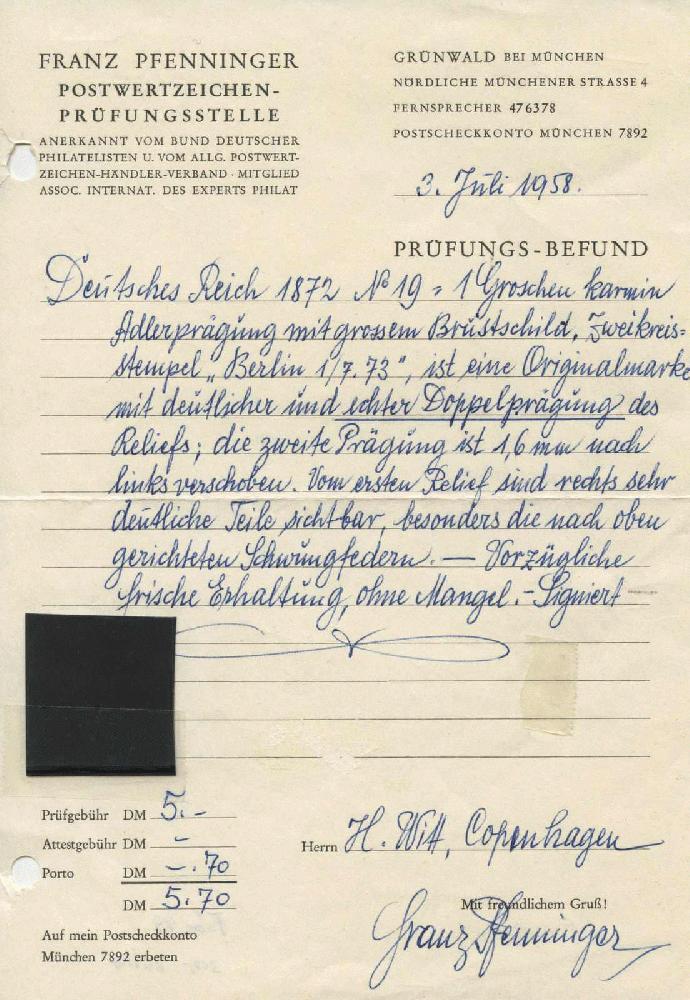 FRANZ PFENNINGER
POSTWERTZEICHEN-
PRÜFUNGSSTELLE
ANERKANNT VOM BUND DEUTSCHER
PHILATELISTEN U. VOM ALLG. POSTWERT-
ZEICHEN-HÄNDLER-VERBAND · MITGLIED
ASSOC. INTERNAT. DES EXPERTS PHILAT
GRÜNWALD BEI MÜNCHEN
NÖRDLICHE MÜNCHENER STRASSE 4
FERNSPRECHER 476378
POSTSCHECKKONTO MÜNCHEN 7892
3. Juli 1958.
PRÜFUNGS-BEFUND
Deutsches Reich 1872 No 19 = 1 Groschen karmin
Adlerprägung mit grossem Brustschild, Zweikreis=
stempel „Berlin 1/7.73", ist eine Originalmarke
mit deutlicher und echter Doppelprägung des
Reliefs; die zweite Prägung ist 1,6 mm nach
links verschoben. Vom ersten Relief sind rechts sehr
deutliche Teile sichtbar, besonders die nach oben
gerichteten Schwungfedern. — Vorzügliche
frische Erhaltung, ohne Mangel. - Signiert
Prüfgebühr DM 5.-
Attestgebühr DM -
Porto DM -.70
DM 5.70
Auf mein Postscheckkonto
München 7892 erbeten
Herrn H. Witt, Copenhagen
Mit freundlichem Gruß!
Franz Pfenninger